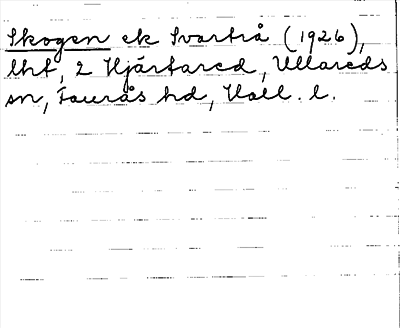 Skogen ek Svartrå (1926),
lht, 2 Hjärtared, Ullareds
sn, Faurås hd, Hall. l.